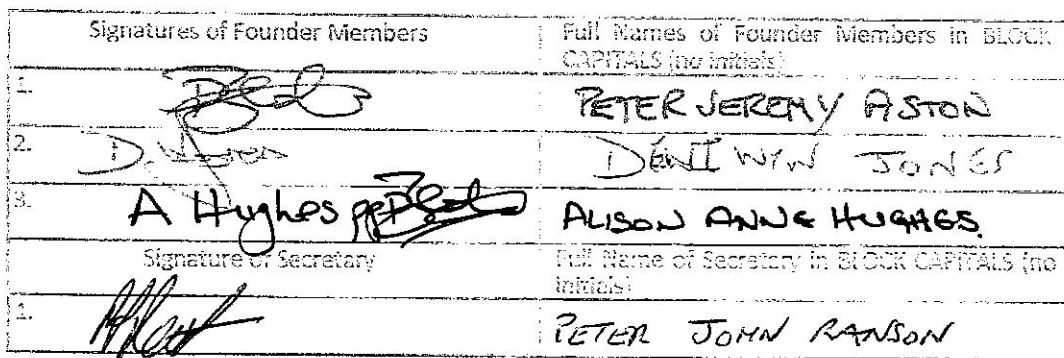 Signatures of Founder Members
Full Names of Founder Members in BLOCK
CAPITALS (no initials)
1.
PETER JEREMY ASTON
2.
DEWI WYN JONES
3. A Hughes pp
ALISON ANNE HUGHES.
Signature of Secretary
Full Name of Secretary in BLOCK CAPITALS (no
initials)
1.
PETER JOHN RANSON